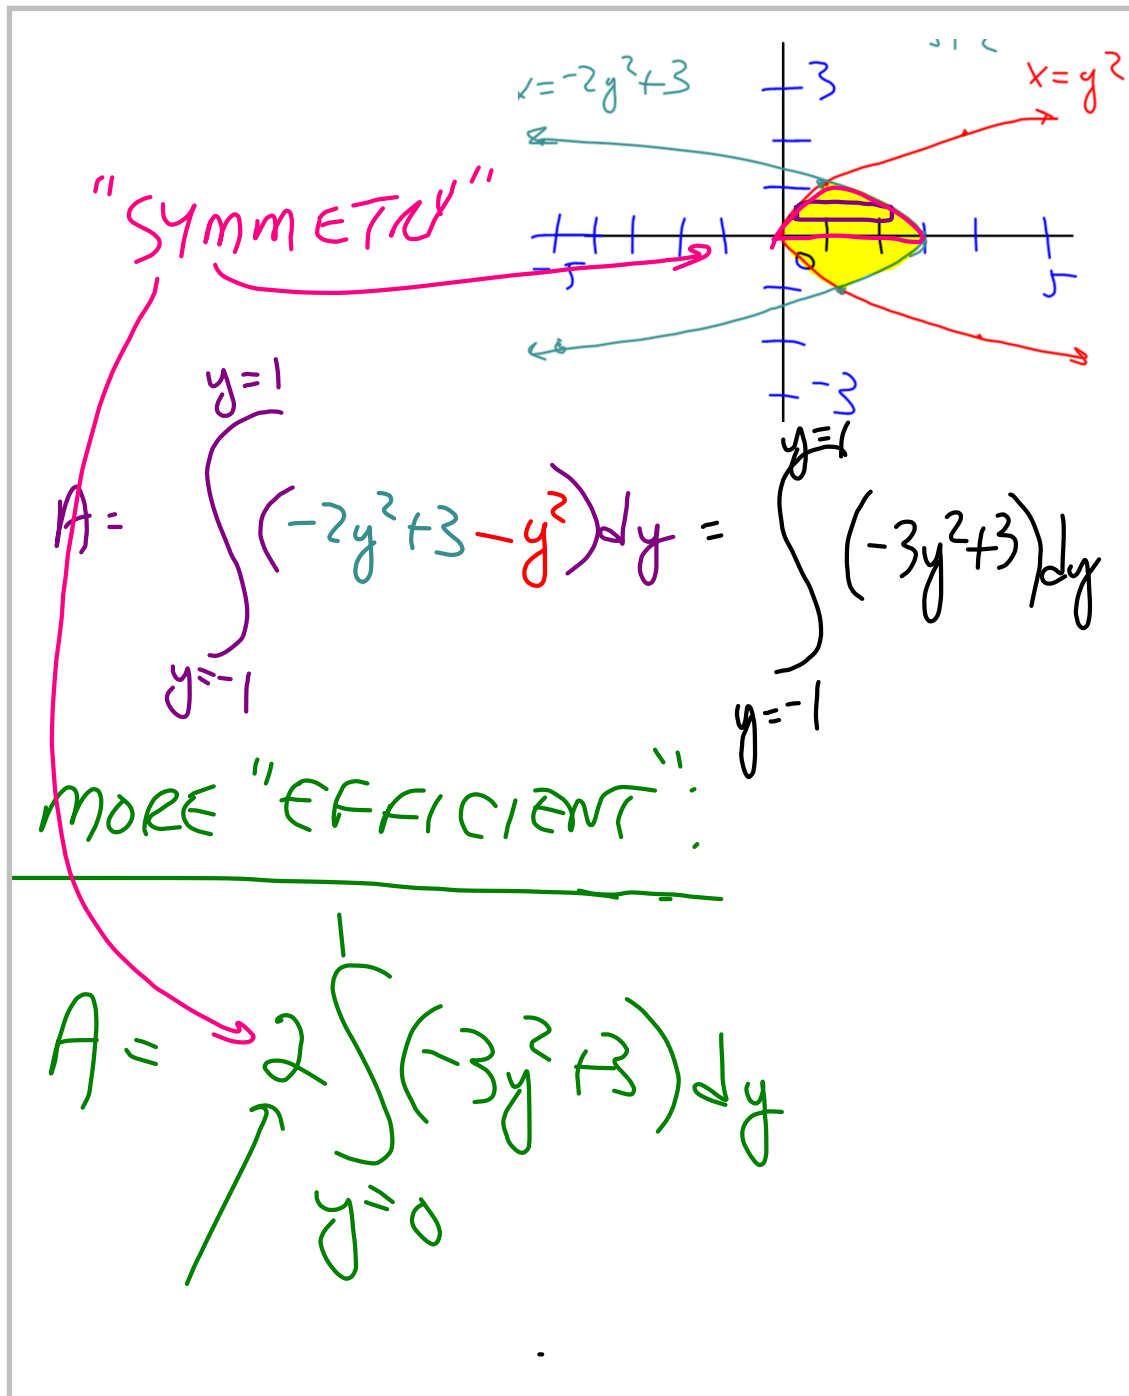 x=-2y²+3
3
x=y²
"SYMMETRY"
-5
0
5
-3
A = ∫_{y=-1}^{y=1} (-2y²+3-y²)dy = ∫_{y=-1}^{y=1} (-3y²+3)dy
MORE "EFFICIENT":
A = 2∫_{y=0}^{1} (-3y²+3)dy